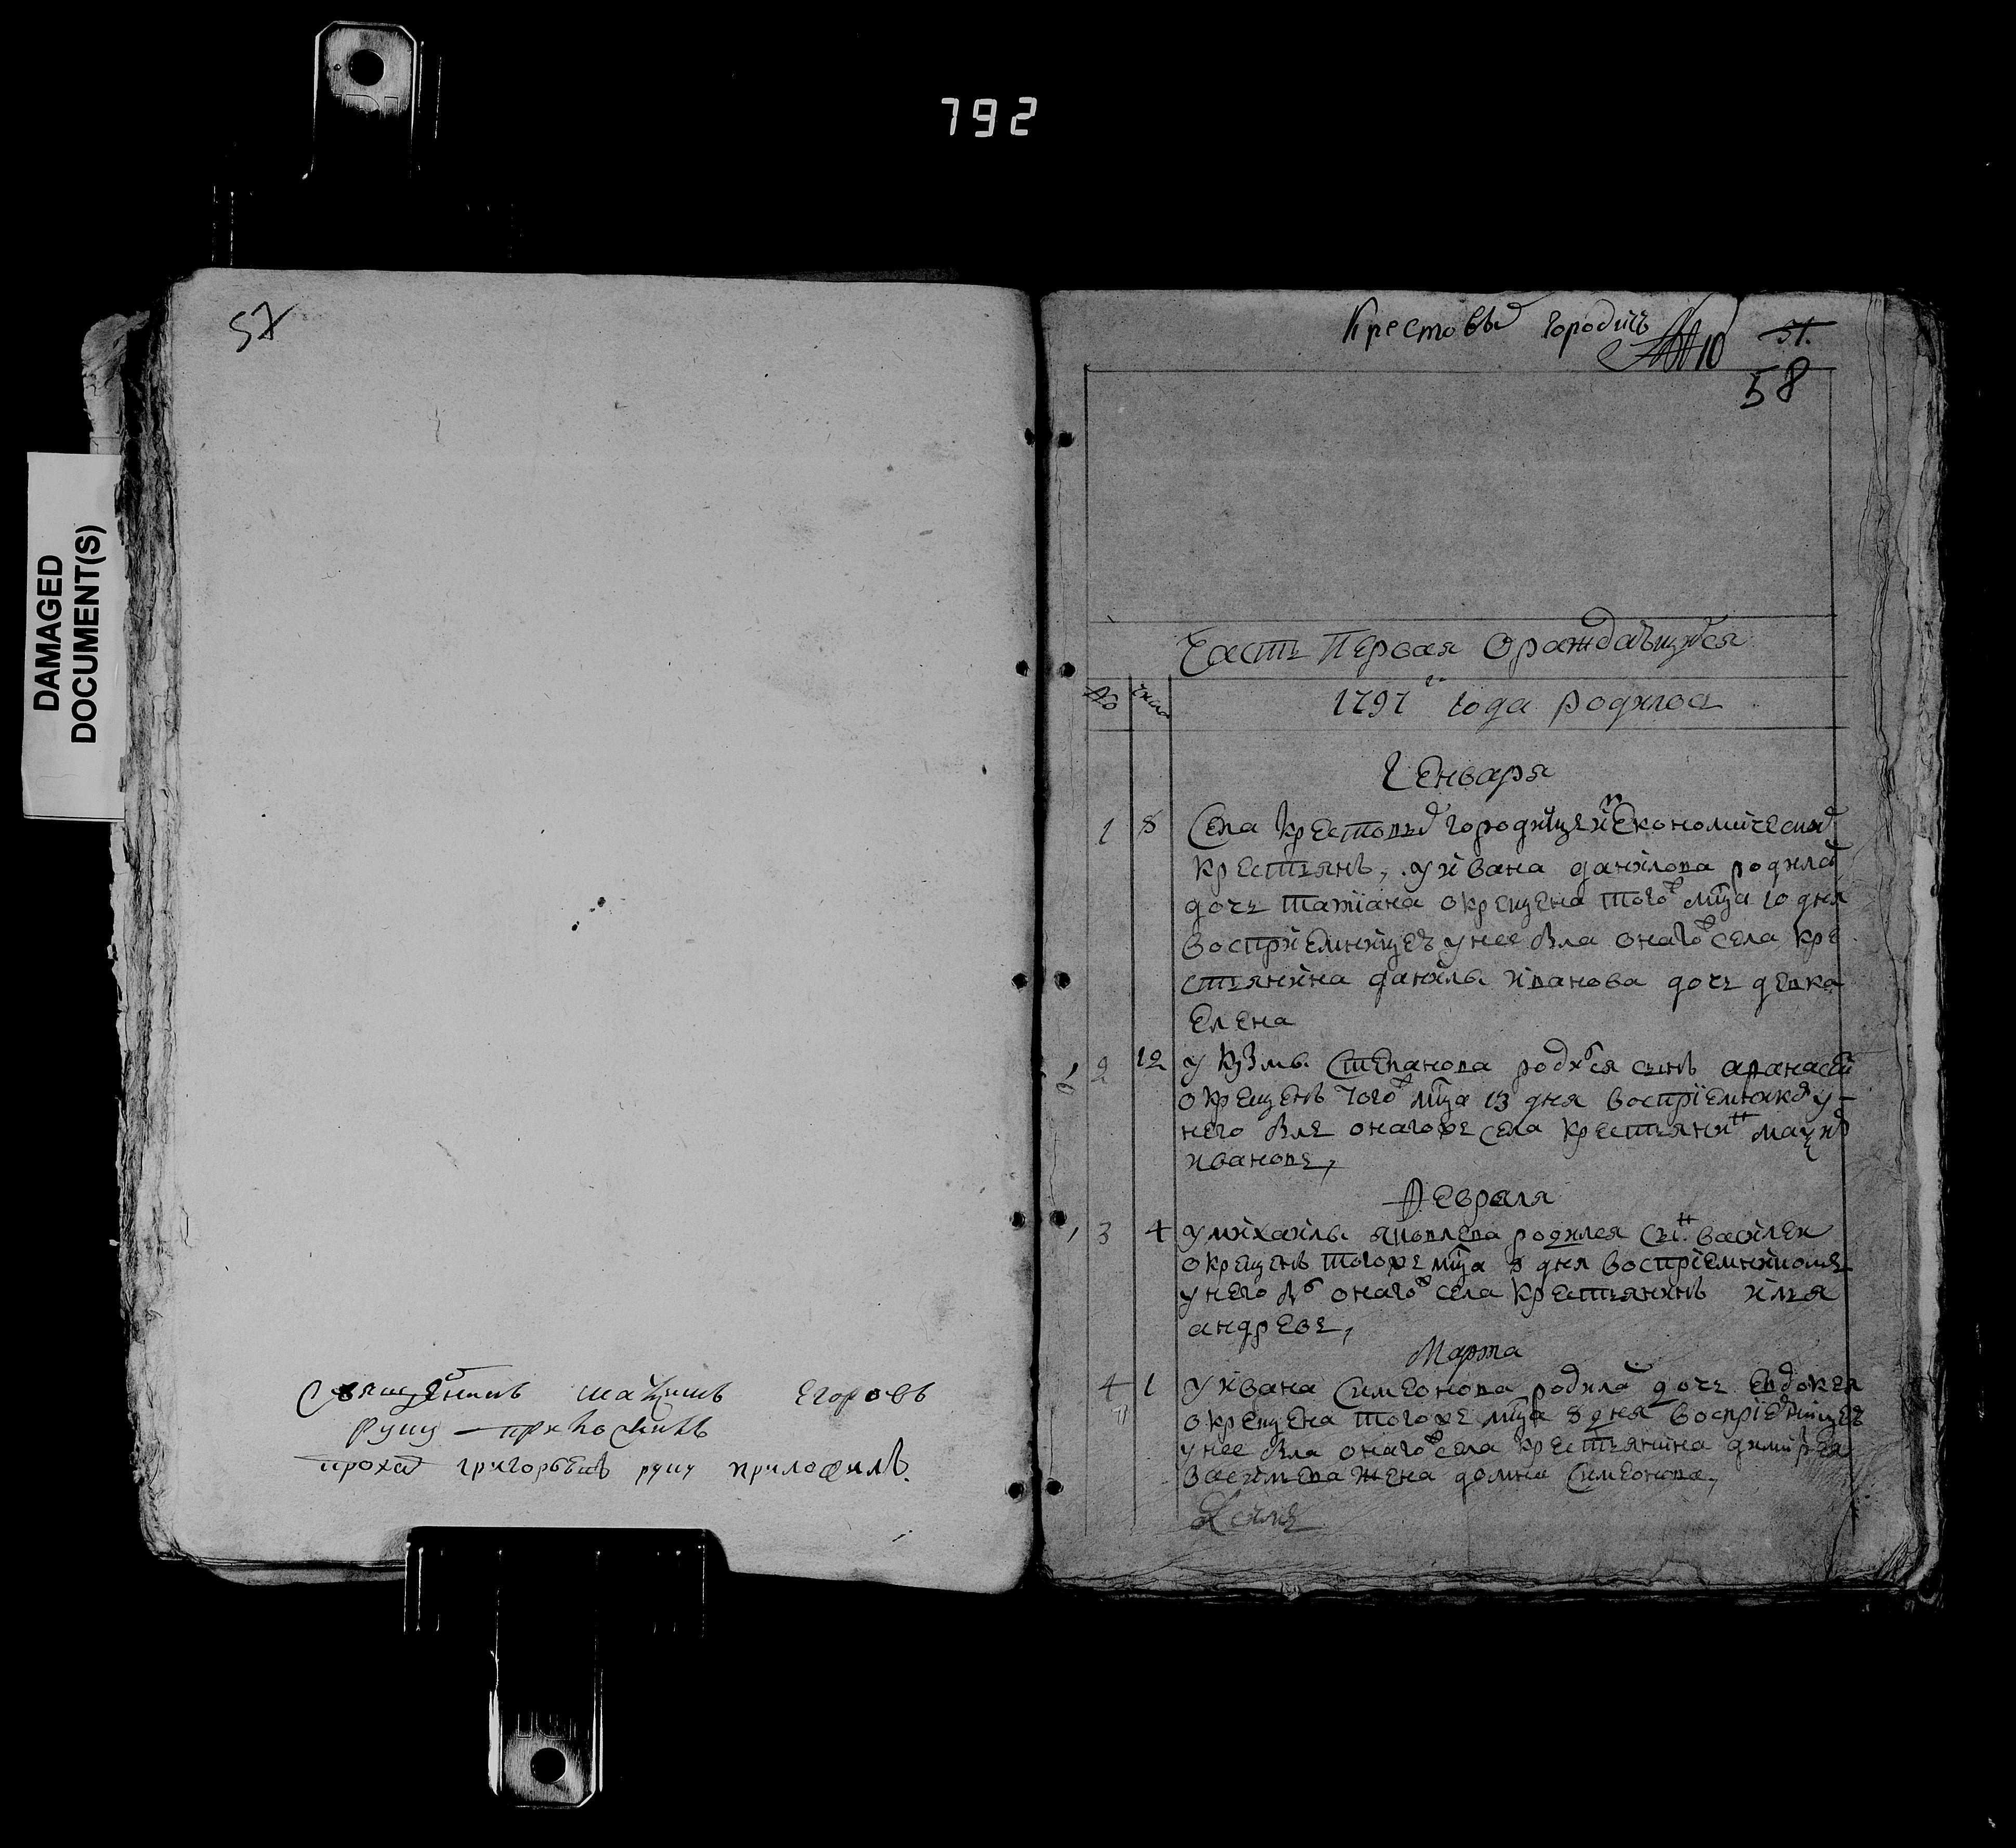 792
DAMAGED
DOCUMENT(S)
57
Священникъ Егоровъ
руку
григорьевъ руку приложилъ.
Крестовы городищ
10
51.
58
Часть Первая О раждающихся
№ числа
1797 года родилос
Генваря
1 8 Села Крестовы городищей Економически
крестьянъ, у ивана данилова родилас
дочь татiана окрещена тогож мца 10 дня
воспрiемницеи у нее была онагож села кре
стьянина данилы иванова дочь девка
Елена
2 12 у Кузмы Степанова родился сынъ афанасеи
окрещенъ тогож мца 13 дня воспрiемником у
него былъ онагоже села крестьянинъ
ивановъ,
Февраля
3 4 у михаилы яковлева родился сын василеи
окрещенъ тогоже мца дня воспрiемникомъ
у него был онагож села крестьянинъ илья
андреевъ,
Марта
4 1 у ивана Симеонова родилас дочь Евдокея
окрещена тогоже мца дня воспрiемницеи
у нее была онагож села крестьянина димитрея
василева жена домна Симеонова,